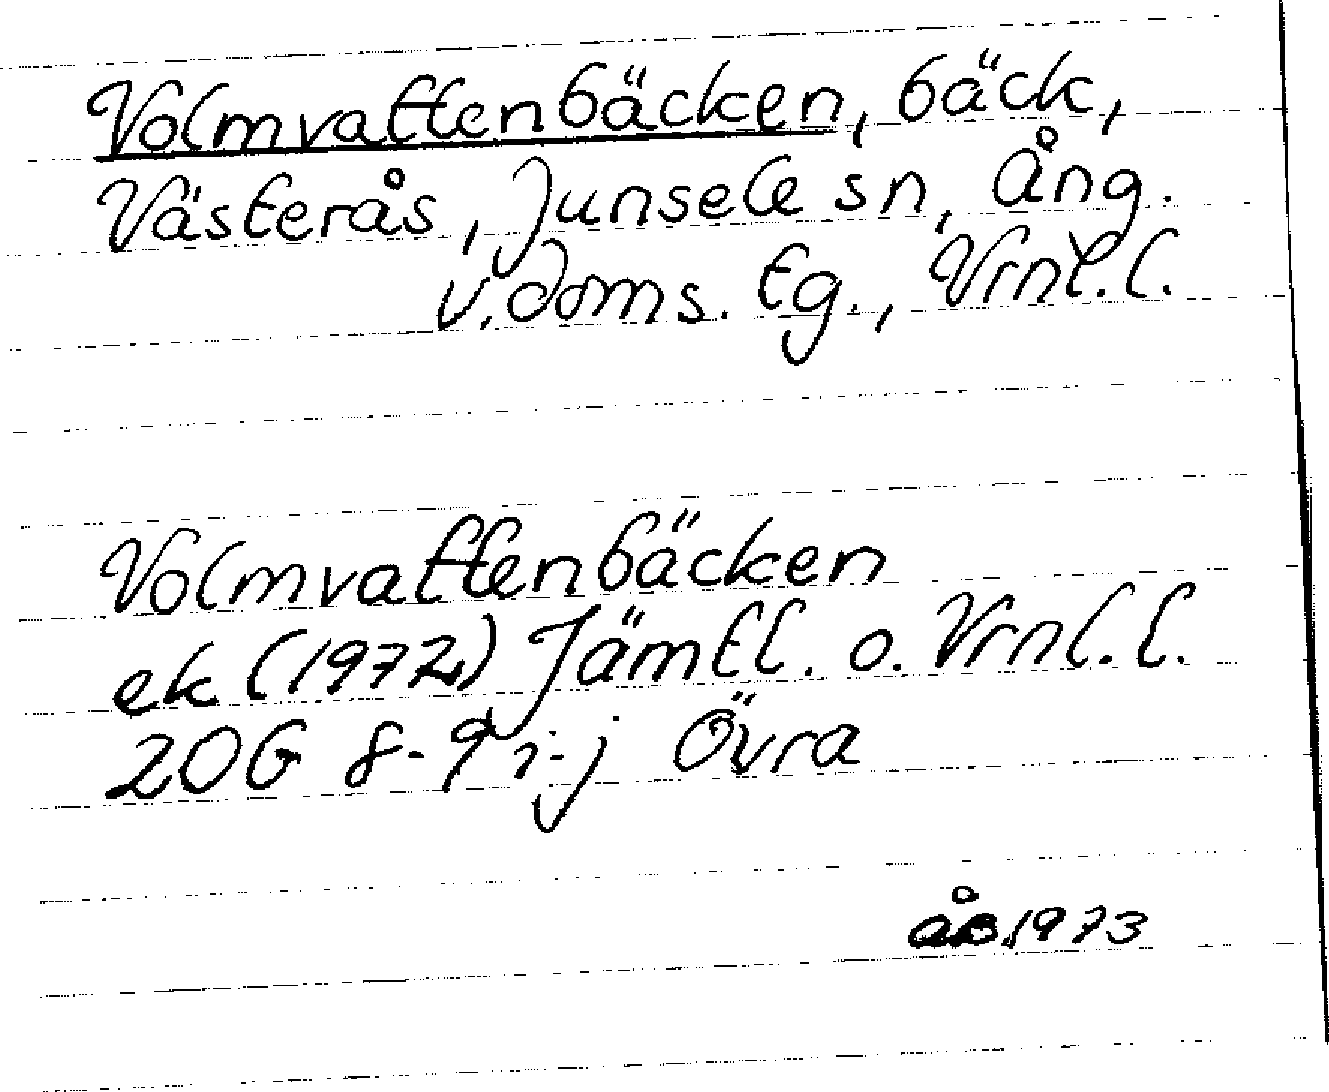 Volmvattenbäcken, bäck,
Västerås, Junsele sn, Ång.
v. doms. tg., Vrnl. l.
Volmvattenbäcken
ek (1972) Jämtl. o. Vrnl. l.
20G 8-9 i-j Övra
åb 1973